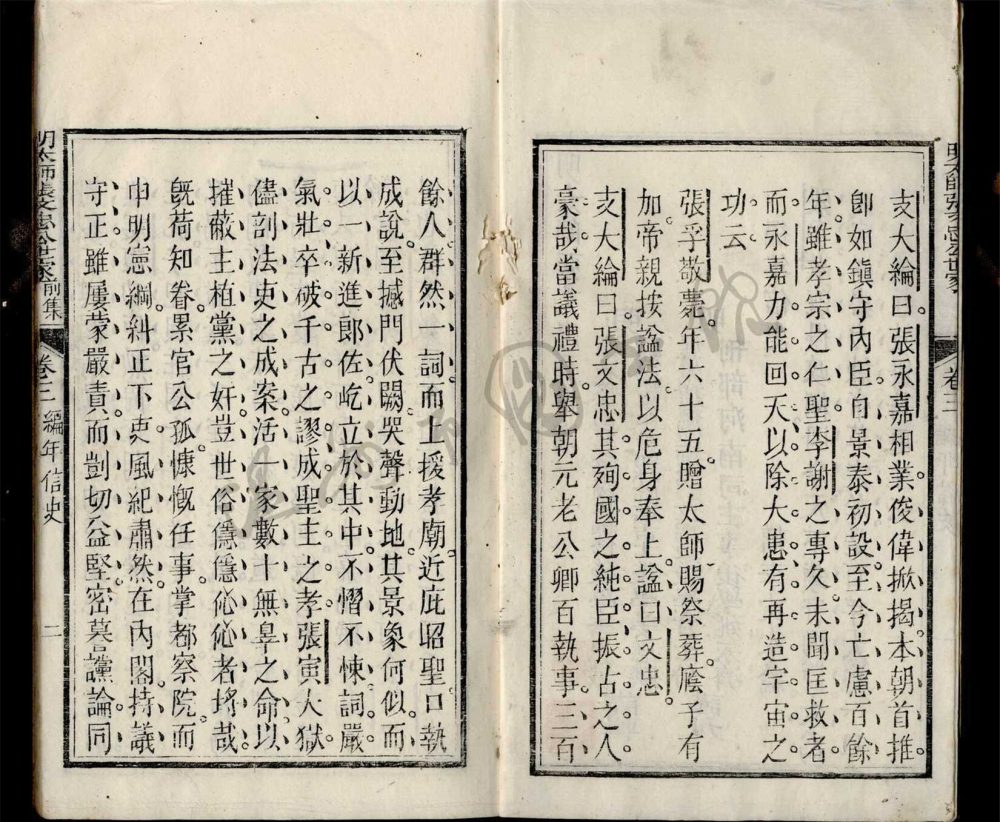 支大綸曰張永嘉相業俊偉掀揭本朝首推
卽如鎭守內臣自景泰初設至今亡慮百餘
年雖孝宗之仁聖李謝之專久未聞匡救者
而永嘉力能回天以除大患有再造宇宙之
功云
張孚敬薨年六十五贈太師賜祭葬廕子有
加帝親按諡法以危身奉上諡曰文忠
支大綸曰張文忠其殉國之純臣振古之人
豪哉當議禮時舉朝元老公卿百執事三百
明太師張文忠公世家
卷三
餘人群然一詞而上援孝廟近庇昭聖口執
成說至撼門伏闕哭聲動地其景象何似而
以一新進郎佐屹立於其中不慴不悚詞嚴
氣壯卒破千古之謬成聖主之孝張寅大獄
儘剖法吏之成案活一家數十無辜之命以
摧蔽主植黨之奸豈世俗隱隱伈伈者埒哉
旣荷知眷累官公孤慷慨任事掌都察院而
申明憲綱糾正下吏風紀肅然在內閣持議
守正雖屢蒙嚴責而剴切益堅密莫讜論同
明太師張文忠公世家前集
卷三
編年信史
二